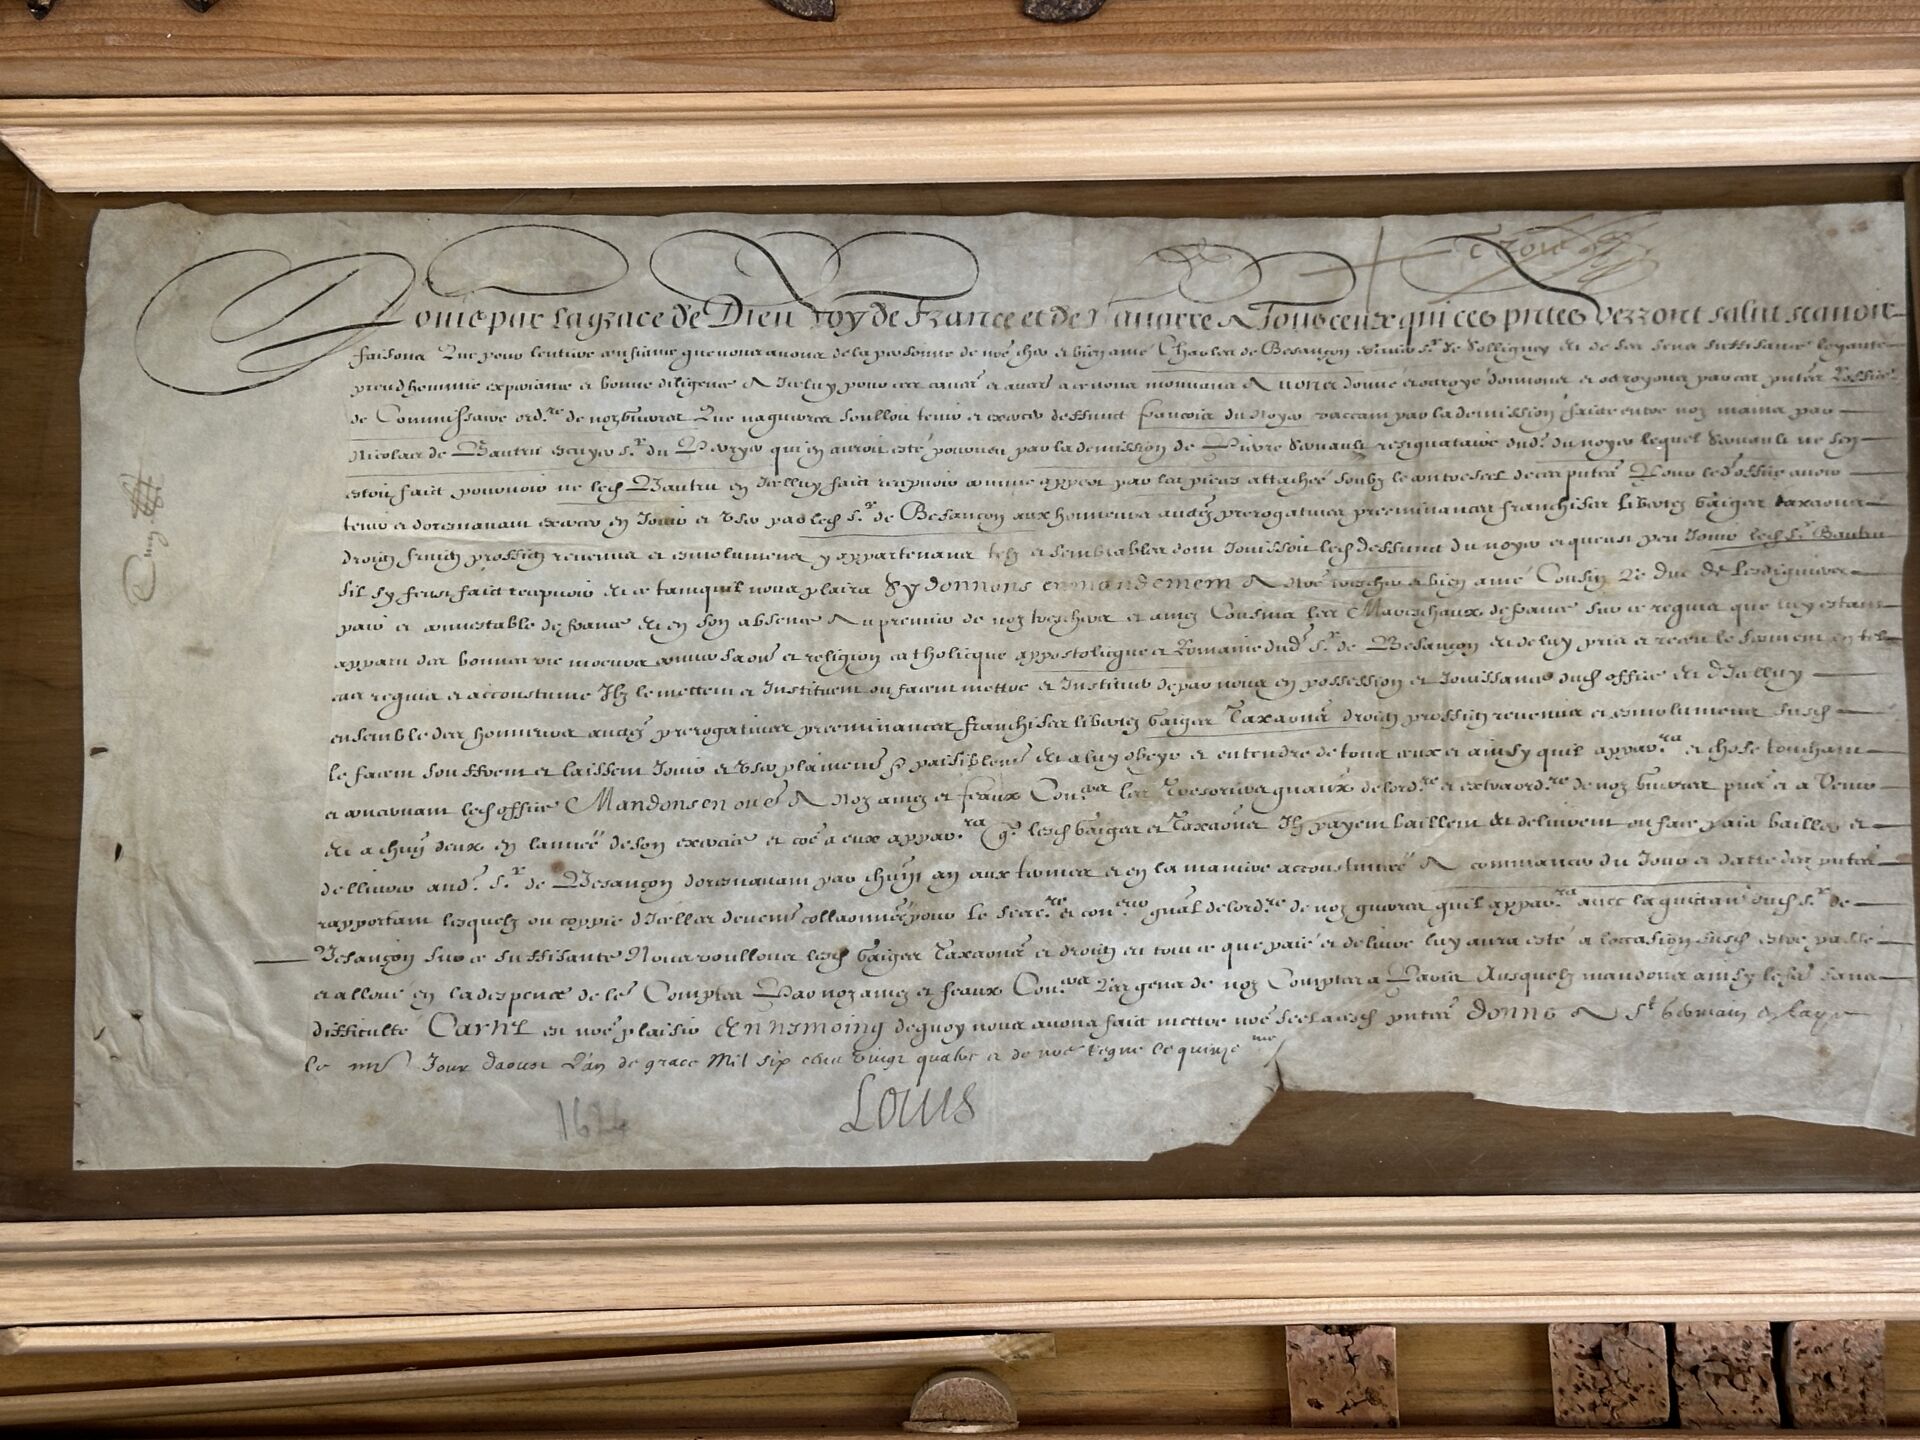 Louis par la grace de Dieu roy de France et de Navarre A Tous ceux qui ces pntes verront salut scavoir
faisons Que pour lentiere confiance que nous avons de la personne de nre cher et bien amé Charles de Besançon escuier Sr. de Solligney et de ses sens suffisance loyaute
preudhommie experiance et bonne diligence A Icelluy pour ces causes et autres a ce nous mouvans Avons donné et octroyé donnons et octroyons par ces pntes Loffice
de Commissaire ordre de noz guerres Que naguerres soulloit tenir et exercer deffunct francois du Noyer vaccant par la demission faite entre noz mains par
Nicolas de Bautru escuyer Sr. du Perryer qui en auroit esté pourveu par la demission de Pierre resignataire dud. du noyer lequel ne sen
estoit faict pourvoir ne led Bautru en Icelluy faict recepvoir comme appert par les pieces attachées soubz le contrescel de ces pntes Pour led office avoir
tenir et doresnavant exercer en Jouir et User par led Sr. de Besançon aux honneurs auctez prerogatives preeminances franchises libertez gaiges taxaons
droictz fruictz proffictz revenus et esmolumens y appartenans telz et semblables dont Jouissoit led deffunct du noyer et que eust peu Jouir led Sr. Bautru
sil sy feust faict recepvoir et ce tant quil nous plaira Sy donnons en mandement A Nre trescher et bien amé Cousin Le Duc de Lesdiguieres
pair et connestable de france et en son absence Au premier de noz treschers et amez Cousins les Mareschaux de france sur ce requis que luy estant
apparu des bonnes vie moeurs conversaon et religion catholicque appostolicque et Romaine dud Sr. de Besançon et de luy pris et receu le serment en tel
cas requis et accoustumé Ilz le mettent et Instituent ou facent mettre et Instituer de par nous en possession et Jouissance dud office et dIcelluy
ensemble des honneurs auctez prerogatives preeminances franchises libertez gaiges Taxaons droictz proffictz revenus et esmolumens susd
le facent souffrent et laissent Jouir et User plainemt & paisiblemt et a luy obeyr et entendre de tous ceux et ainsy quil appara et choses touchant
et concernant led office Mandons en oue A Noz amez et feaux Coners les Tresoriers gnaux de lordre et extraordre de noz guerres pns et a Venir
et a chun deux en lannée de son exercice et coe a eux appara q. lesd gaiges et Taxaons Ilz payent baillent et delivrent ou face paier bailler et
dellivrer aud. Sr. de Besançon doresnavant par chun an aux termes et en la maniere accoustumée A commancer du Jour et datte des pntes
rapportant lesquelz ou coppie dIcelles deuemt collaonnée pour le secre et conerolle gnal de lordre de noz guerres quil appara avec la quittance dud Sr. de
Besançon sur ce suffisante Nous voullons lesd gaiges Taxaons et droictz et tout ce que paié et delivré luy aura esté a loccasion susd estre passé
et alloué en la despence de les Comptes Par noz amez et feaux Coners Les gens de noz Comptes a Paris Ausquelz mandons ainsy le fe sans
difficulté Car tel est nre plaisir En tesmoing dequoy nous avons faict mettre nre seel a cesd pntes Donné A St Germain en laye
le Jour daoust Lan de grace Mil six cens vingt quatre et de nre regne le quinziesme
Louis
1624